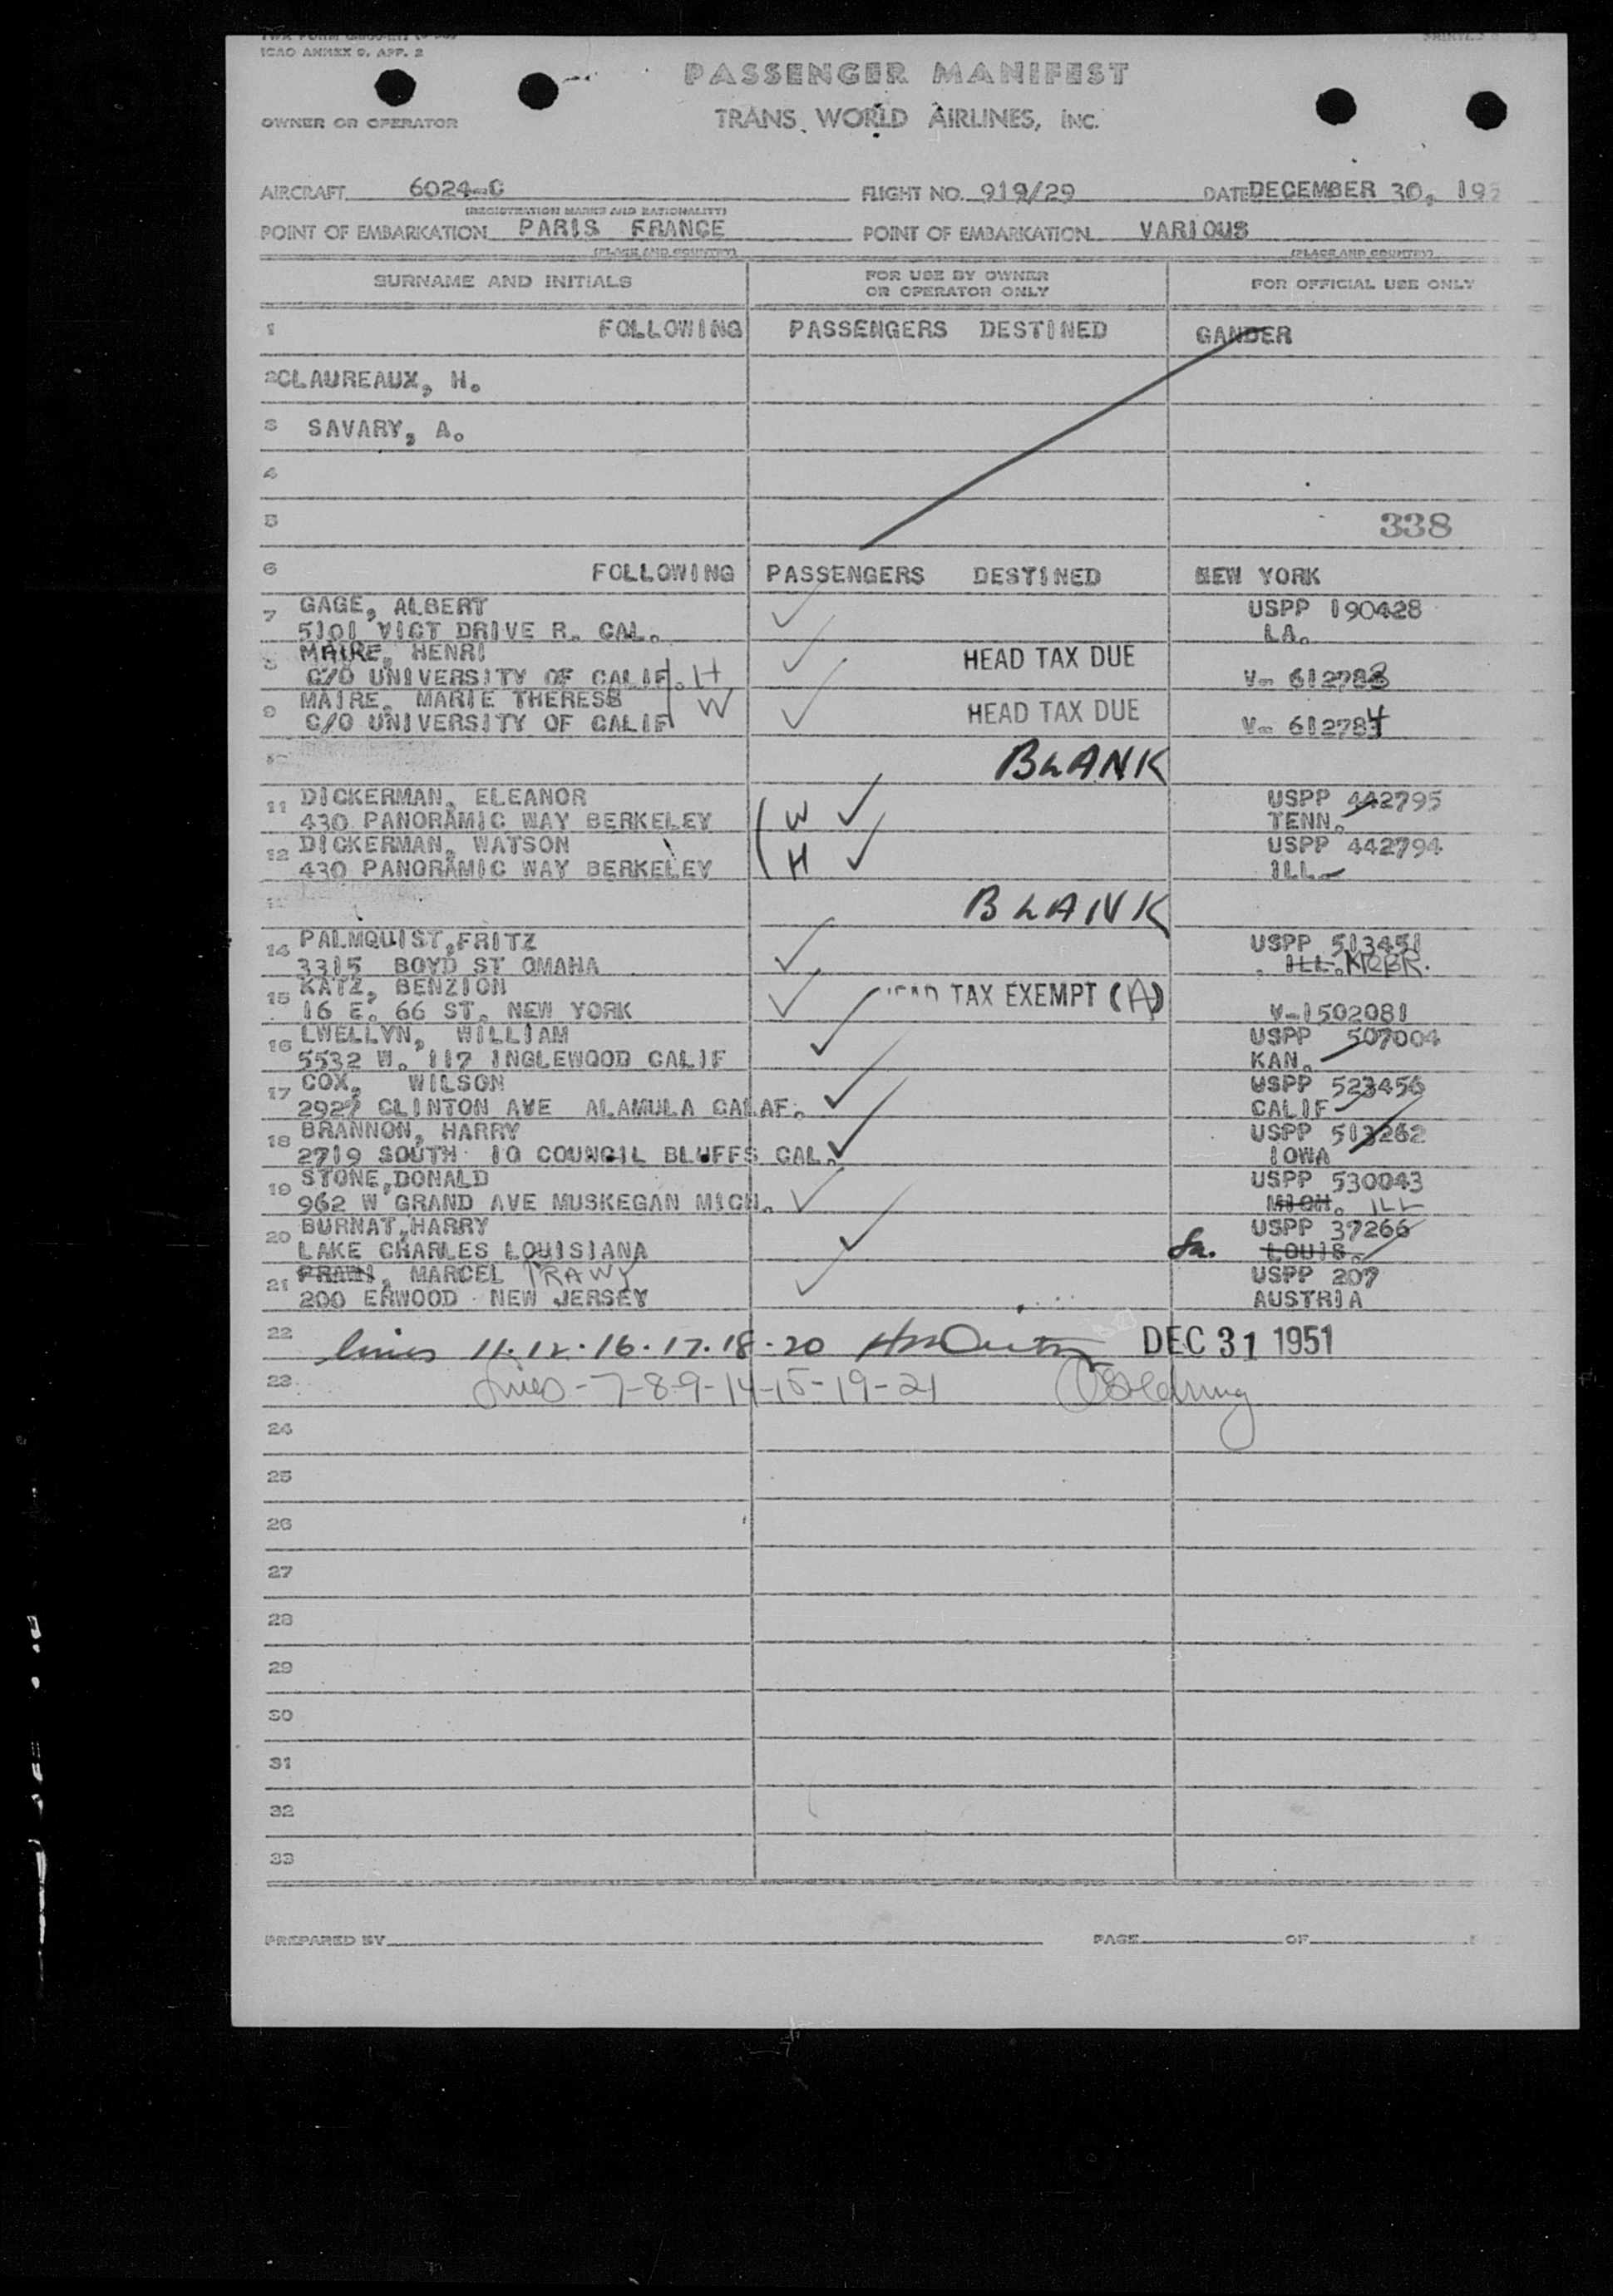 ICAO ANNEX 9, APP. 2
PASSENGER MANIFEST
OWNER OR OPERATOR
TRANS WORLD AIRLINES, INC.
AIRCRAFT 6024-C FLIGHT NO. 919/29 DATE DECEMBER 30, 195
(REGISTRATION MARKS AND NATIONALITY)
POINT OF EMBARKATION PARIS FRANCE POINT OF EMBARKATION VARIOUS
(PLACE AND COUNTRY) (PLACE AND COUNTRY)
SURNAME AND INITIALS FOR USE BY OWNER OR OPERATOR ONLY FOR OFFICIAL USE ONLY
1 FOLLOWING PASSENGERS DESTINED GANDER
2 CLAUREAUX, H.
3 SAVARY, A.
4
5 338
6 FOLLOWING PASSENGERS DESTINED NEW YORK
7 GAGE, ALBERT USPP 190428
5101 VICT DRIVE R. CAL. LA.
8 MAIRE, HENRI HEAD TAX DUE
C/O UNIVERSITY OF CALIF. H V- 612783
9 MAIRE, MARIE THERESE W HEAD TAX DUE
C/O UNIVERSITY OF CALIF V- 612784
BLANK
11 DICKERMAN, ELEANOR W USPP 442795
430 PANORAMIC WAY BERKELEY TENN.
12 DICKERMAN, WATSON H USPP 442794
430 PANORAMIC WAY BERKELEY ILL
BLANK
14 PALMQUIST,FRITZ USPP 513451
3315 BOYD ST OMAHA ILL. NEBR.
15 KATZ, BENZION TAX EXEMPT (A)
16 E. 66 ST. NEW YORK V-1502081
16 LWELLYN, WILLIAM USPP 507004
5532 W. 117 INGLEWOOD CALIF KAN.
17 COX, WILSON USPP 523456
2927 CLINTON AVE ALAMULA CALAF. CALIF
18 BRANNON, HARRY USPP 513262
2719 SOUTH 10 COUNCIL BLUFFS CAL. IOWA
19 STONE,DONALD USPP 530043
962 W GRAND AVE MUSKEGAN MICH. MICH. ILL
20 BURNAT,HARRY USPP 37266
LAKE CHARLES LOUISIANA La. LOUIS.
21 PRAWI, MARCEL PRAWY USPP 207
200 ERWOOD NEW JERSEY AUSTRIA
22 lines 11.12.16.17.18.20 DEC 31 1951
23 Lines-7-8-9-14-15-19-21
24
25
26
27
28
29
30
31
32
33
PREPARED BY PAGE OF